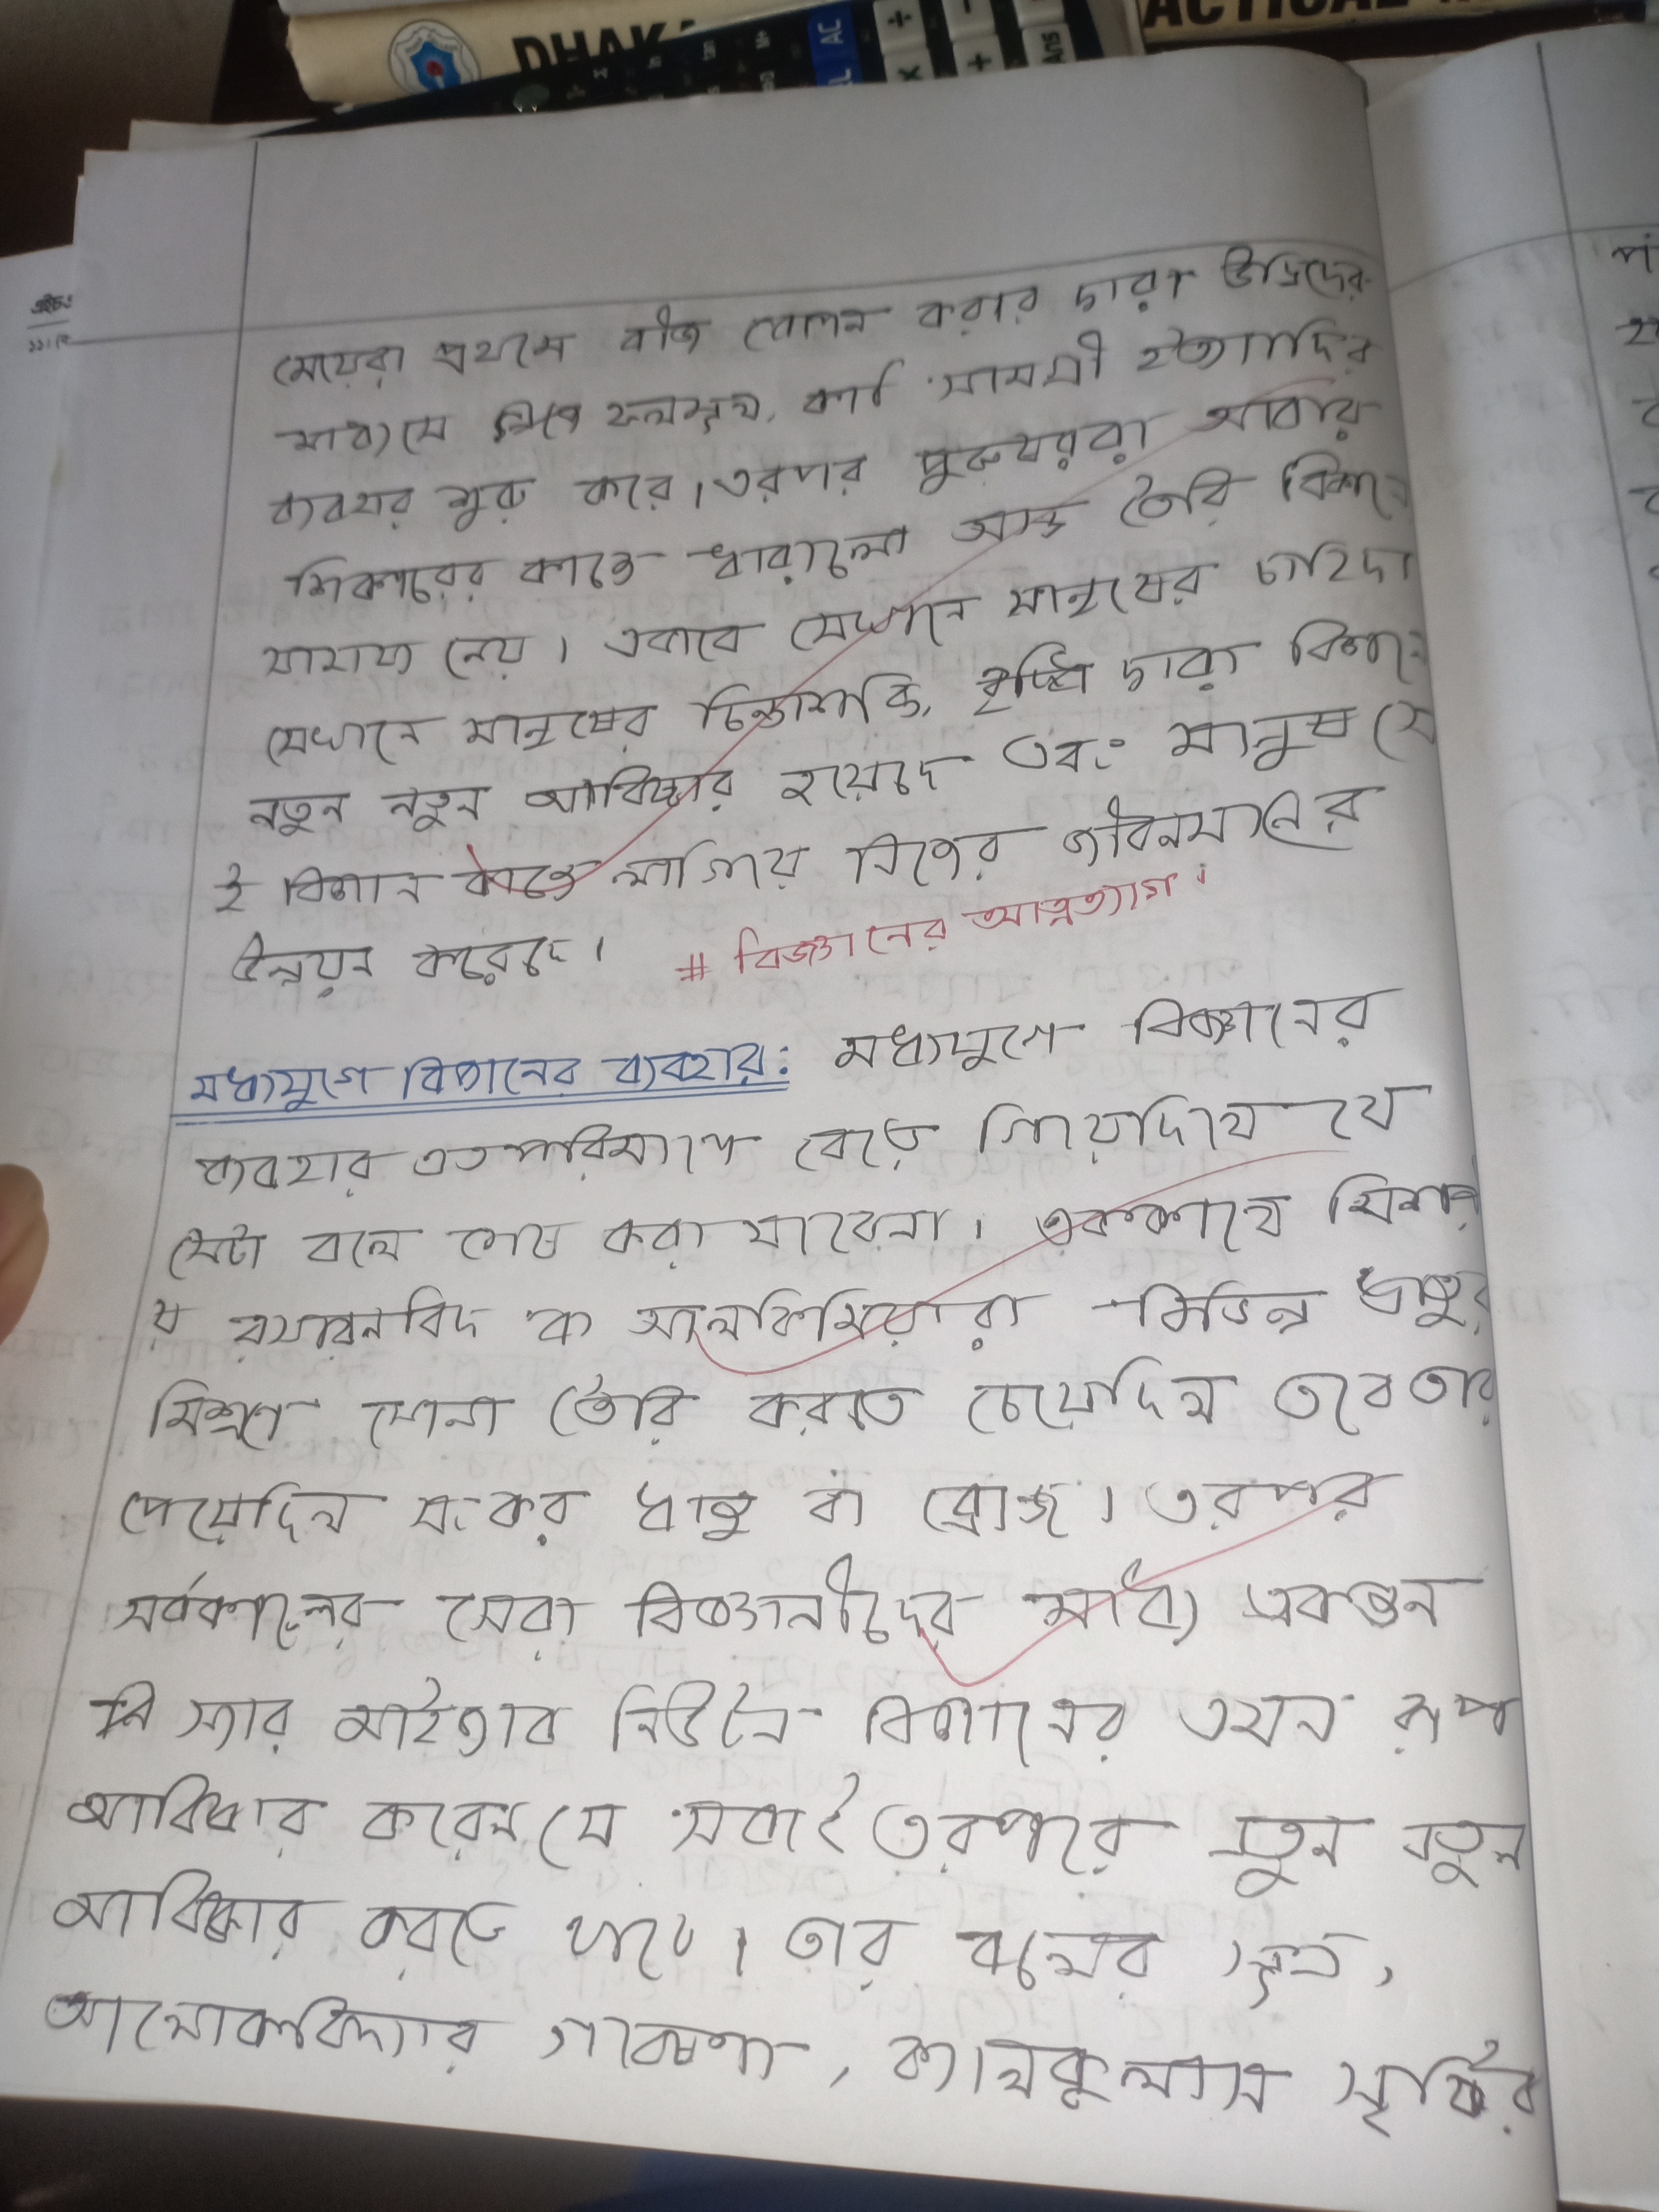 DHAKA
AC
÷
×
+
ANS
মেয়েরা প্রথমে বীজ বোপন করার দ্বারা উদ্ভিদের
মাধ্যমে ফলমূল, কাঠ সামগ্রী ইত্যাদির
ব্যবহার শুরু করে। তরপর পুরুষরা আবার
শিকারের কাজে ধারালো অস্ত্র তৈরি বিজ্ঞানে
সাহায্য নেয়। এবাবে যেখানে মানুষের চাহিদা
সেখানে মানুষের চিন্তাশক্তি, দ্বারা বিজ্ঞানে
নতুন নতুন আবিষ্কার হয়েছে এবং মানুষ সে
ই বিজ্ঞান কাজে লাগিয়ে নিজের জীবনমানের
উন্নয়ন করেছে।
# বিজ্ঞানের আত্নত্যাগ।
মধ্যযুগে বিজ্ঞানের ব্যবহার: মধ্যযুগে বিজ্ঞানের
ব্যবহার এত পরিমাণে বেড়ে গিয়েছিলো যে
সেটা বলে শেষ করা যাবেনা। এককালে মিশরী
য় রসায়নবিদ বা আলকিমিয়ারা বিভিন্ন ধাতুর
মিশ্রণে সোনা তৈরি করতে চেয়েছিল তবে তারা
পেয়েছিল সংকর ধাতু বা ব্রোঞ্জ। তরপর
সর্বকালের সেরা বিজ্ঞানীদের মধ্যে একজন
স্যার আইজ্যাক নিউটন বিজ্ঞানের এমন রূপ
আবিষ্কার করেন যে সবাই তরপরে নতুন নতুন
আবিষ্কার করতে থাকে। তার বলের সূত্র,
আলোকবিদ্যার গবেষণা, ক্যালকুলাস সৃষ্টির